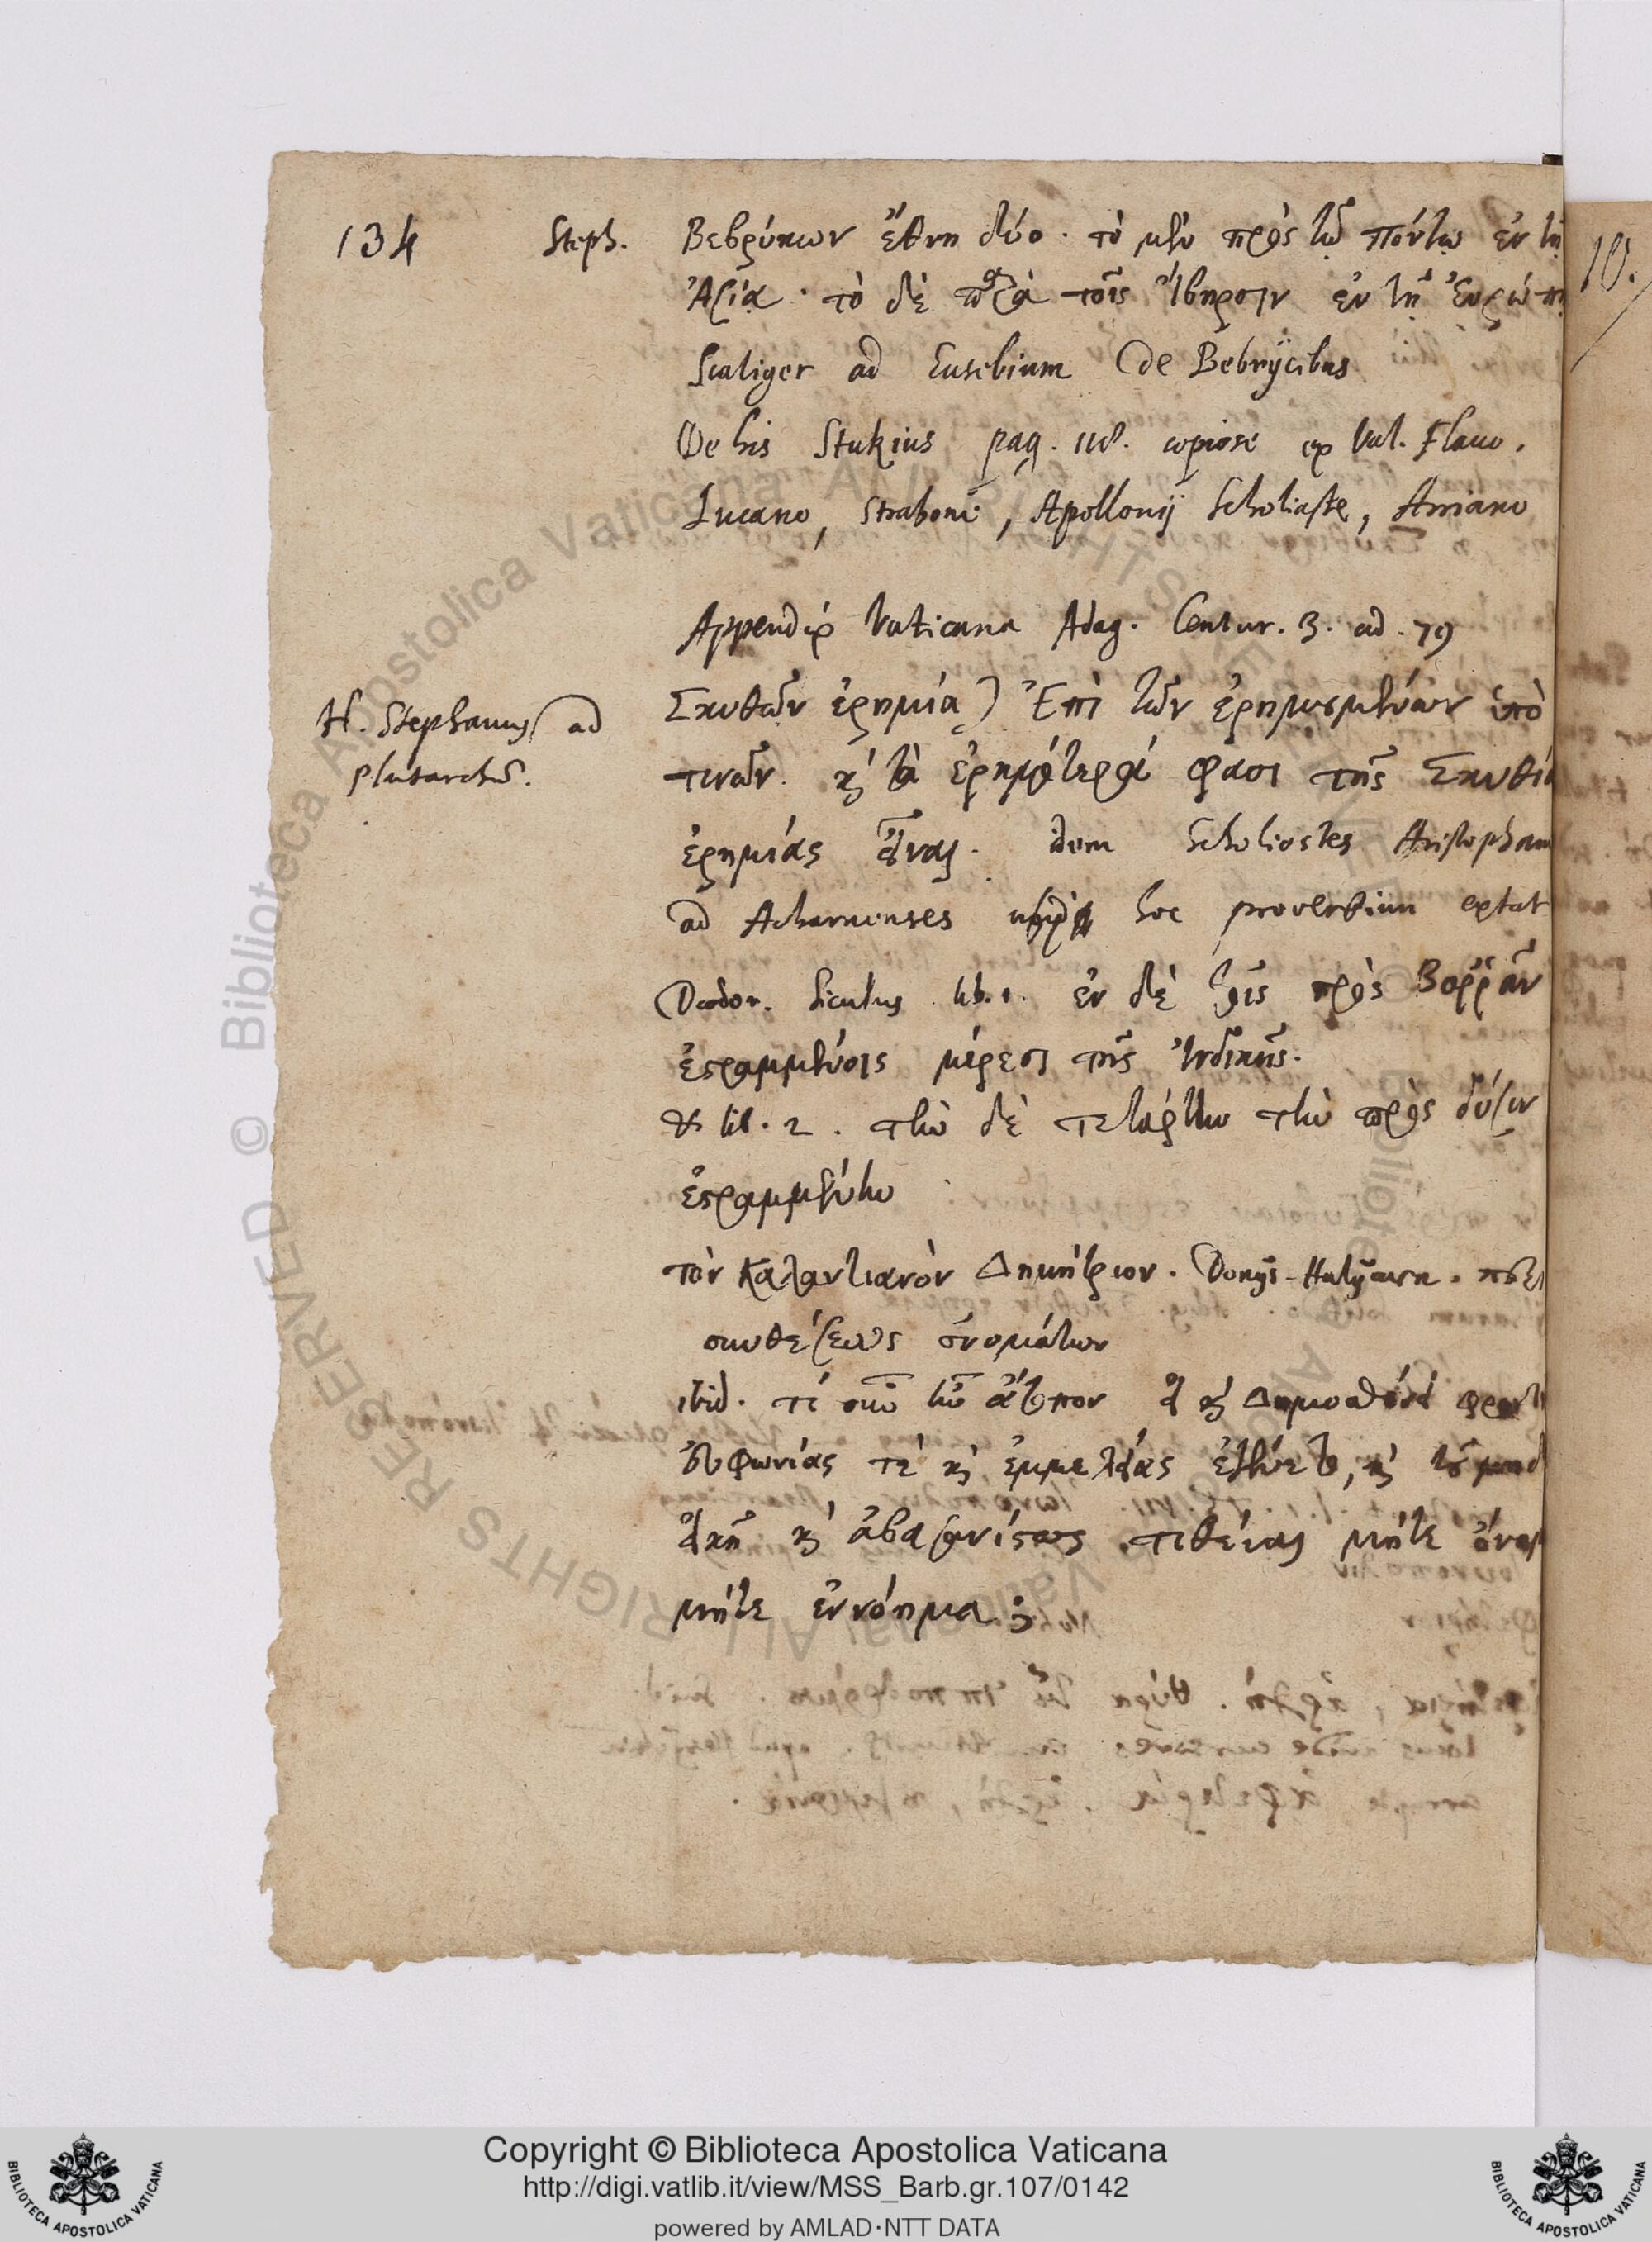 134 Steph. Βεβρύκων ἔθνη δύο. τὸ μὲν πρὸς τῷ πόντῳ ἐν τῇ
Ἀσίᾳ. τὸ δὲ παρὰ τοῖς Ἴβηρσιν ἐν τῇ Εὐρώπῃ
Scaliger ad Eusebium de Bebrÿcibus
De his Stukius pag. 118. copiose ex Val. Flacco.
Lucano, Strabone, Apollonij Scholiaste, Arriano
Appendix Vaticana Adag. Centur. 3. ad. 79
H. Stephanus ad
Plutarchũ.
Σκυθῶν ἐρημία) Ἐπὶ τῶν ἐρημουμένων ὑπὸ
τινῶν. καὶ τὰ ἐρημότερά φασι τῆς Σκυθία
ἐρημίας εἶναι. idem Scholiastes Aristophan
ad Acharnenses hoc proverbium extat
Diodor. Siculus lib. 1. ἐν δὲ τοῖς πρὸς Βοῤῥᾶν
ἐστραμμένοις μέρεσι τῆς Ἰνδικῆς.
& lib. 2. τὴν δὲ τετάρτην τὴν πρὸς δύσιν
ἐστραμμένην
τὸν Καλαντιανὸν Δημήτριον. Donÿs. Halÿcarn. περι
συνθέσεως ὀνομάτων
ibid. τί οὖν ἦν ἄτοπον εἰ καὶ Δημοσθένει φροντὶ
εὐφωνίας τὲ καὶ ἐμμελείας ἐγένετο, καὶ τοῦ μηδ
εἰκῆ καὶ ἀβασανίστως τιθέναι μήτε ὄνομ
μήτε ἐννόημα;
10.
Copyright © Biblioteca Apostolica Vaticana
http://digi.vatlib.it/view/MSS_Barb.gr.107/0142
powered by AMLAD·NTT DATA